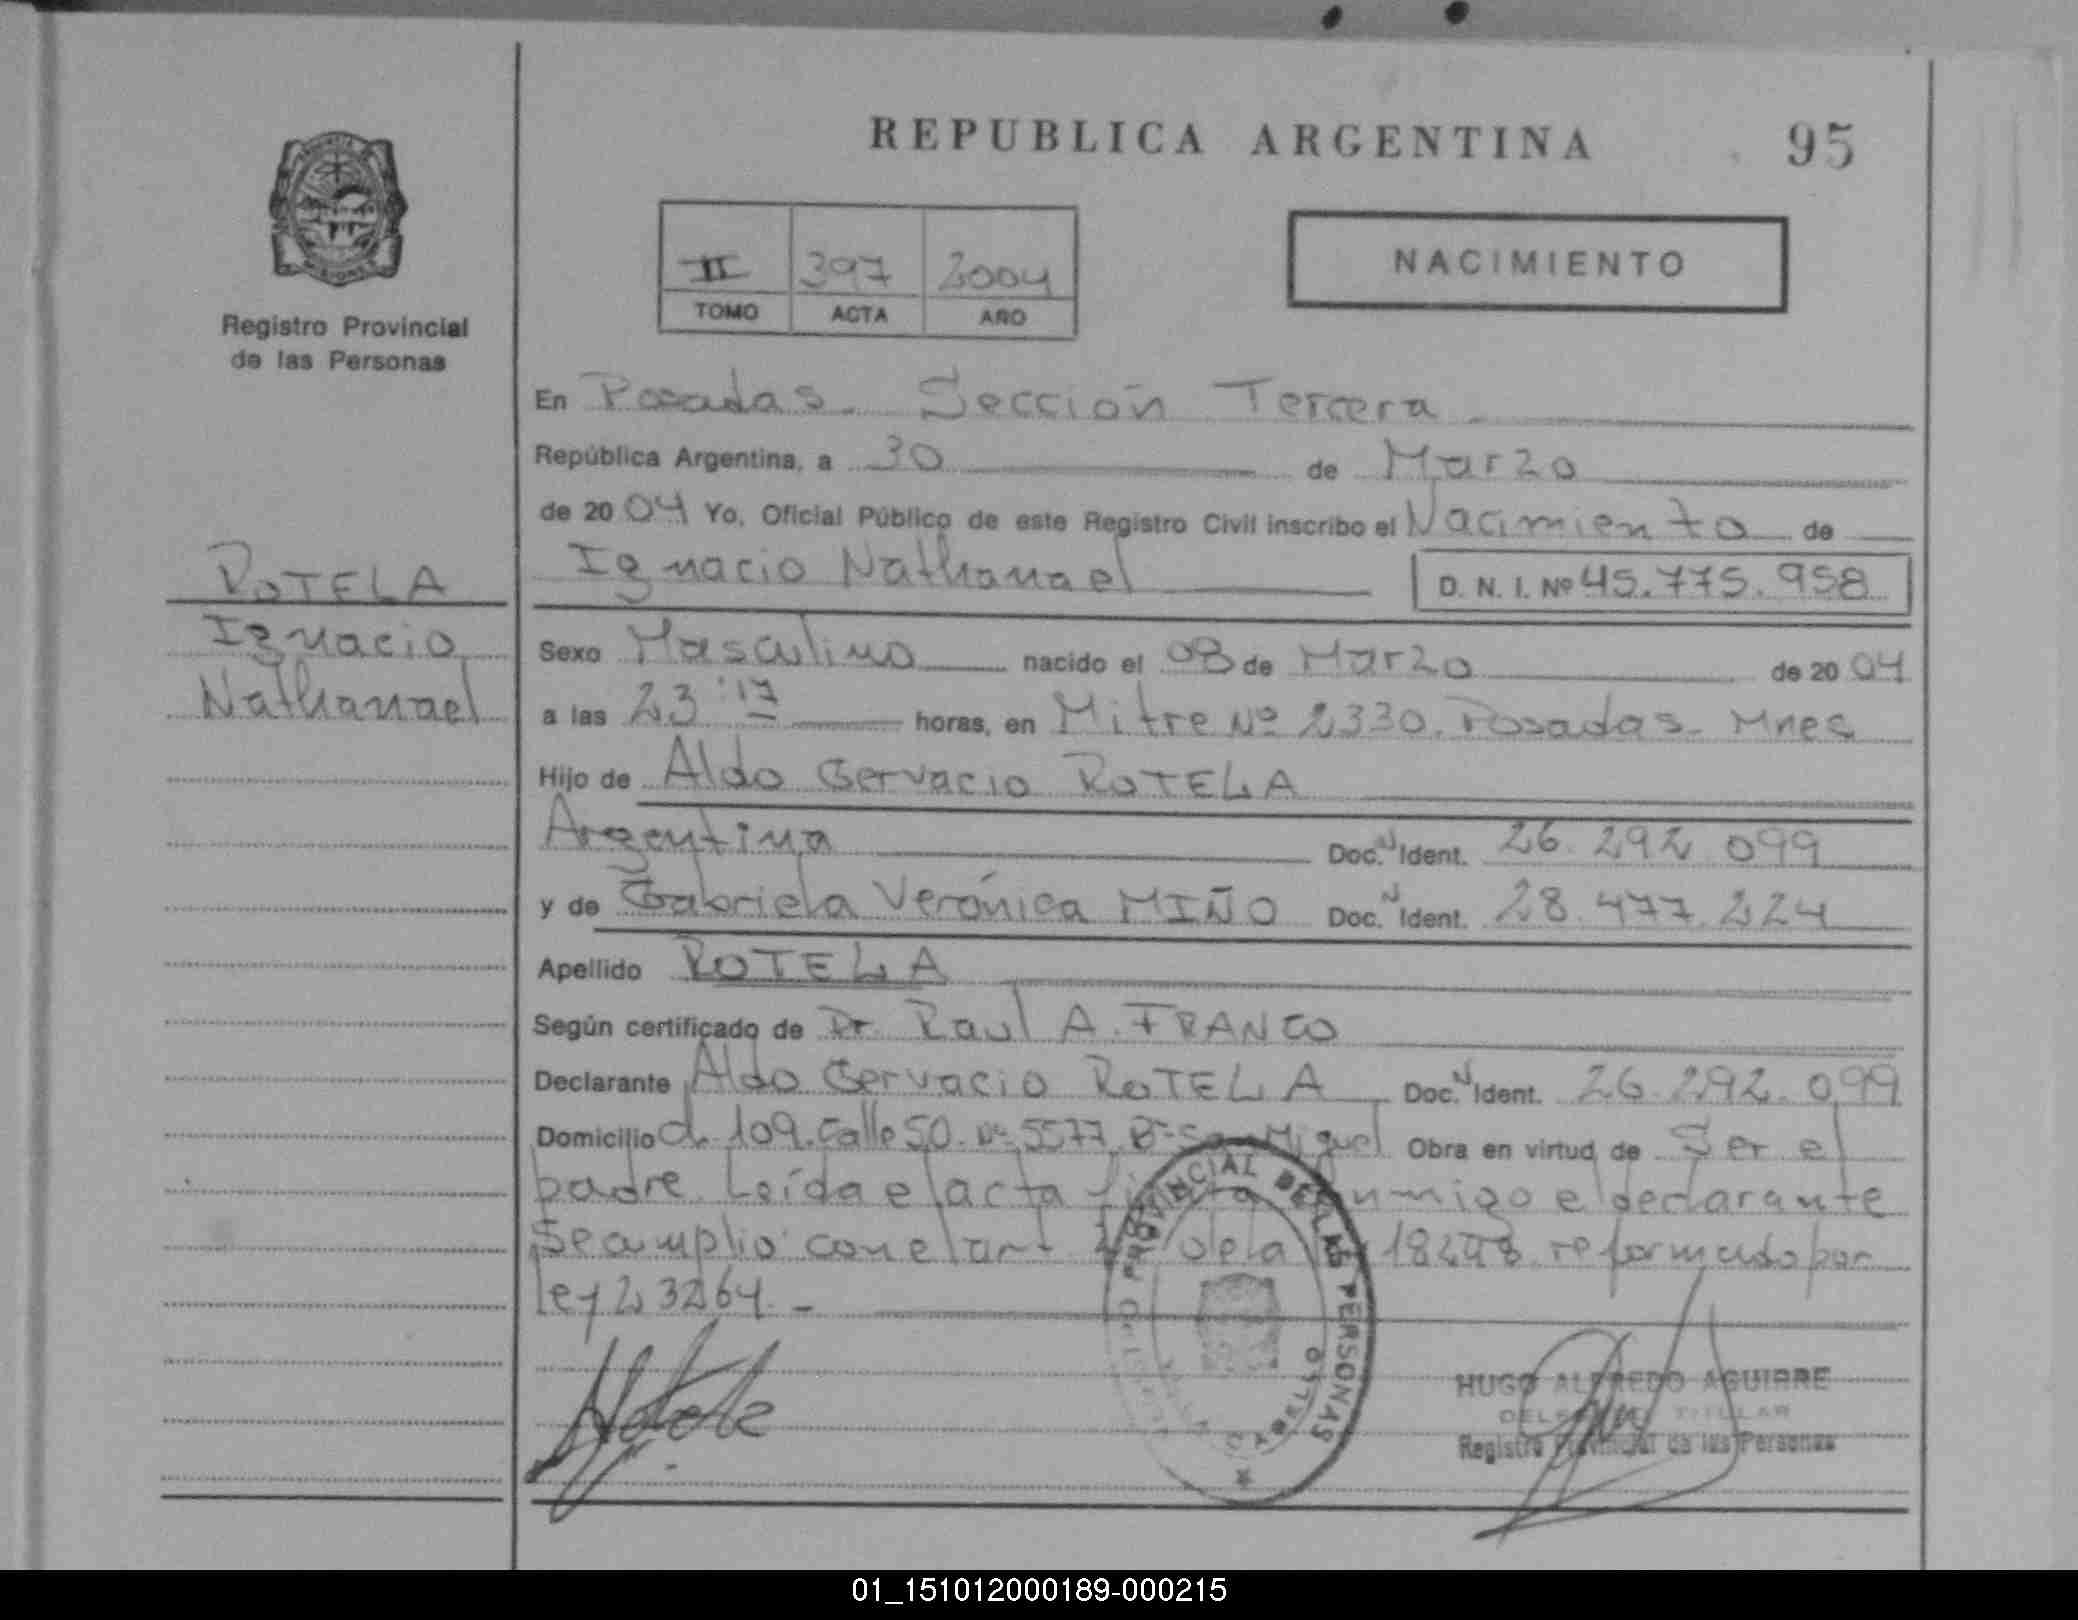 REPUBLICA ARGENTINA 95
II 397 2004
TOMO ACTA AÑO
NACIMIENTO
MISIONES
Registro Provincial
de las Personas
ROTELA
Ignacio
Nathanael
En Posadas. Sección Tercera
República Argentina, a 30 de Marzo
de 2004 Yo, Oficial Público de este Registro Civil inscribo el Nacimiento de
Ignacio Nathanael D. N. I. Nº 45.775.958
Sexo Masculino nacido el 08 de Marzo de 2004
a las 23:17 horas, en Mitre Nº 2330. Posadas - Mnes
Hijo de Aldo Gervacio ROTELA
Argentina Doc. Ident. 26.292.099
y de Gabriela Verónica MIÑO Doc. Ident. 28.477.224
Apellido ROTELA
Según certificado de Dr. Raul A. FRANCO
Declarante Aldo Gervacio ROTELA Doc. Ident. 26.292.099
Domicilio Ch. 109. Calle 50. Nº 5577. Bº San Miguel Obra en virtud de Ser el
padre. Leída el acta el declarante
Se amplio con el art de la 18248 reformado por
ley 23264. -
REGISTRO PROVINCIAL DE LAS PERSONAS
HUGO ALFREDO AGUIRRE
DELEGADO TITULAR
Registro Provincial de las Personas
01_151012000189-000215